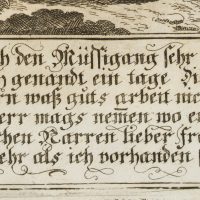 ch den Müssigang sehr
h genandt ein tage
rn waß guts arbeit
err mags nemen wo er
chen Narren lieber fre
ehr als ich vorhanden